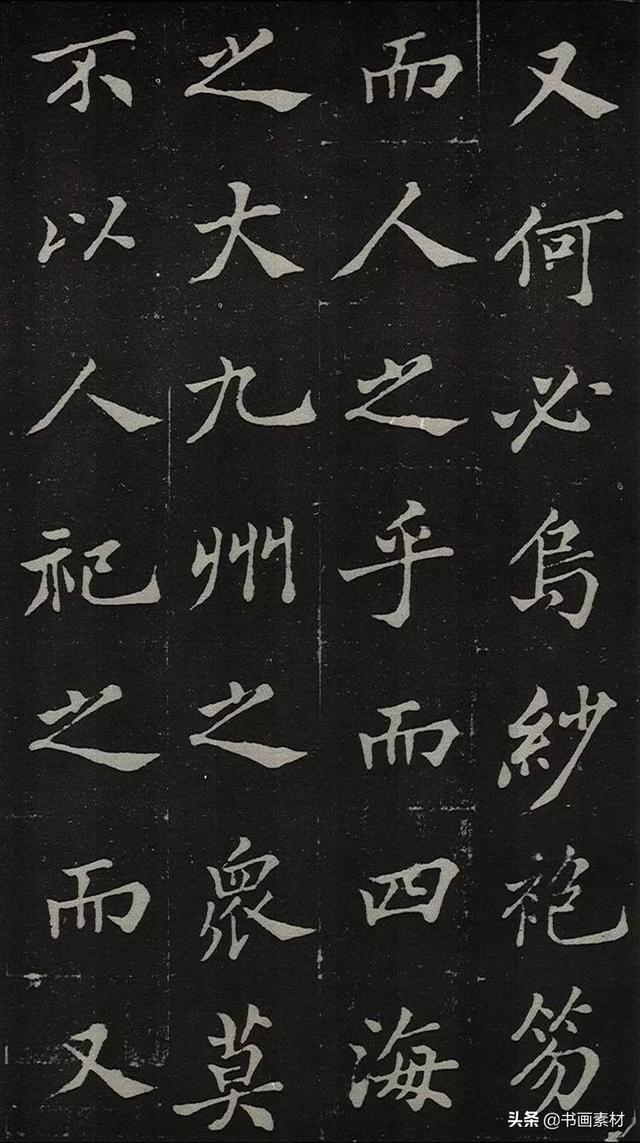 又何必烏紗袍笏
而人之乎而四海
之大九州之眾莫
不以人祀之而又
头条 @书画素材